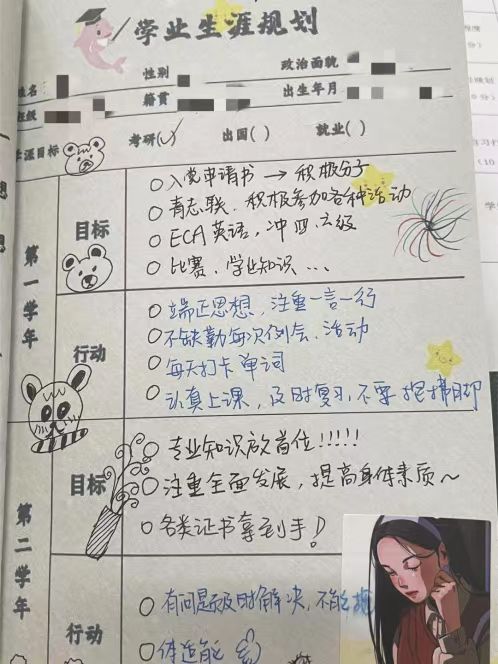 学业生涯规划
姓名 性别 政治面貌
班级 籍贯 出生年月
学涯目标 考研(✓) 出国( ) 就业( )
第一学年
目标
○入党申请书 → 积极分子
○青志联、积极参加各种活动
○ECA英语,冲四、六级
○比赛、学业知识...
行动
○端正思想、注重一言一行
○不缺勤每次例会、活动
○每天打卡单词
○认真上课,及时复习,不要抱佛脚
第二学年
目标
○专业知识放首位!!!!!
○注重全面发展,提高身体素质~
○各类证书拿到手!
行动
○有问题及时解决,不能拖
○体适能